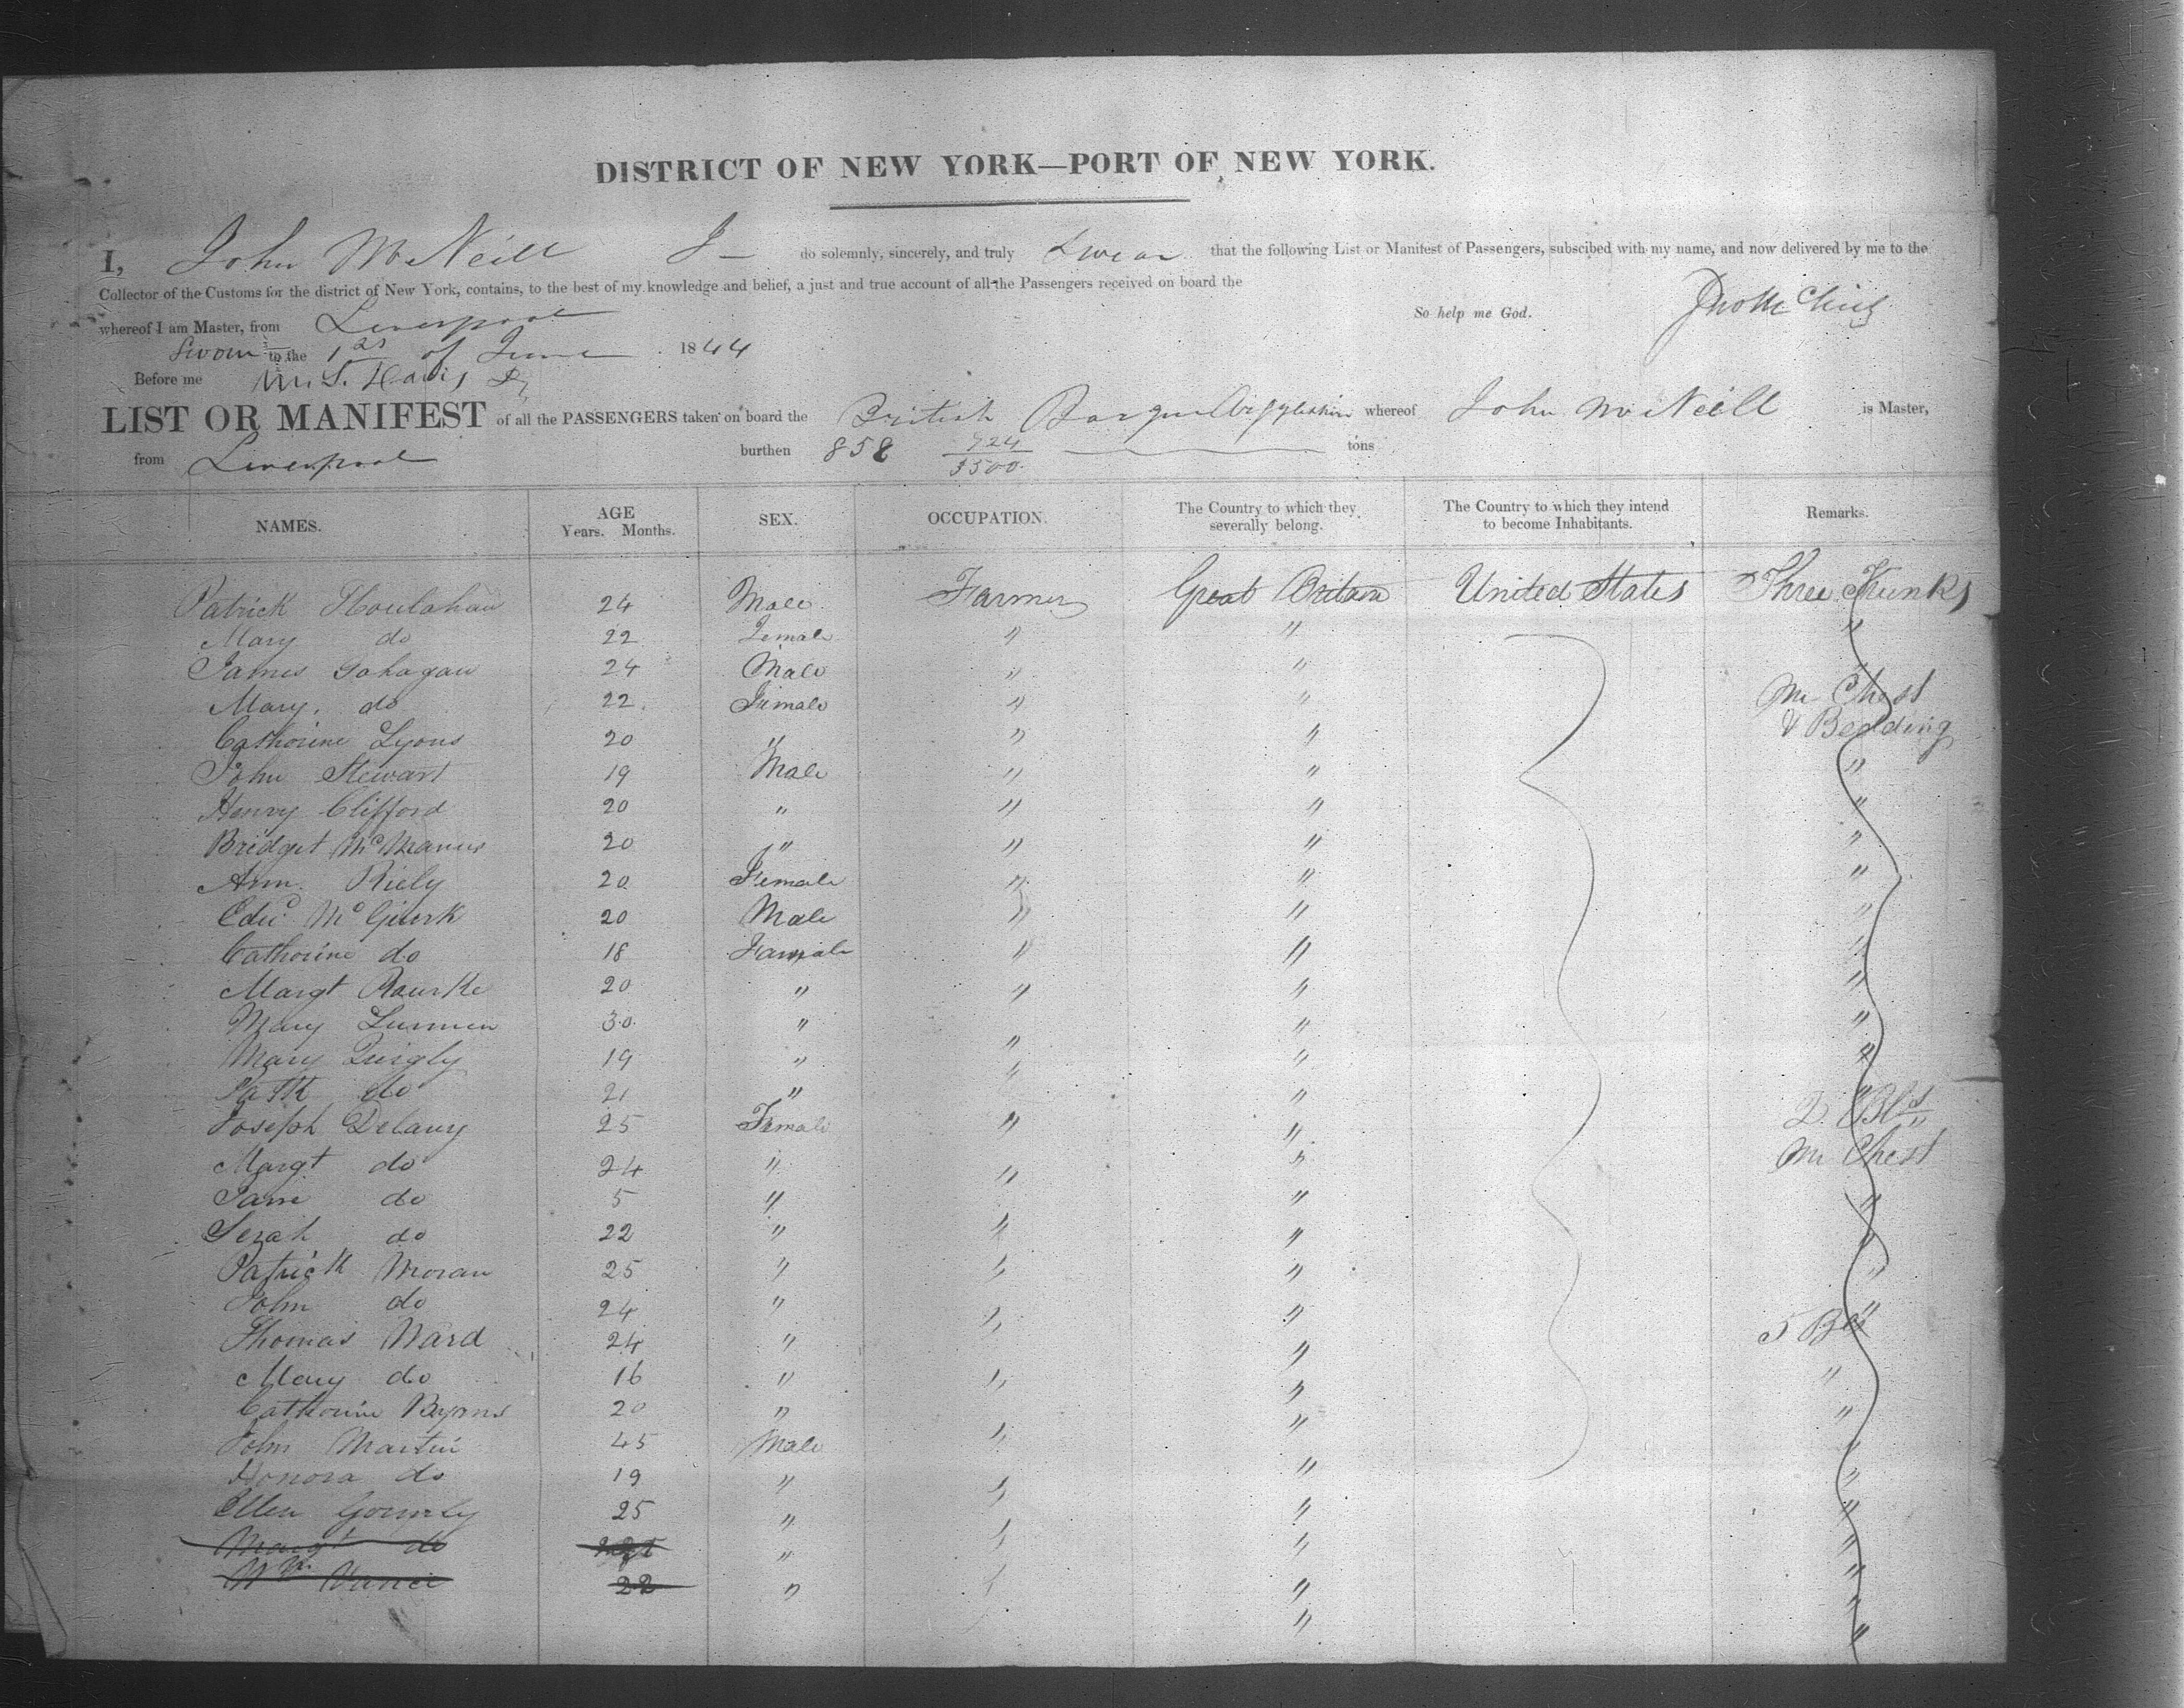 DISTRICT OF NEW YORK—PORT OF NEW YORK.
I, John McNeill do solemnly, sincerely, and truly Swear that the following List or Manifest of Passengers, subscibed with my name, and now delivered by me to the
Collector of the Customs for the district of New York, contains, to the best of my knowledge and belief, a just and true account of all the Passengers received on board the
whereof I am Master, from Liverpool So help me God.
Sworn to the 1st of June 1844
Before me
LIST OR MANIFEST of all the PASSENGERS taken on board the British Barque whereof John McNeill is Master,
from Liverpool burthen 858 724/3500 tons
NAMES. AGE Years. Months. SEX. OCCUPATION. The Country to which they severally belong. The Country to which they intend to become Inhabitants. Remarks.
Patrick Houlahan 24 Male Farmer Great Britain United States Three Trunks
Mary do 22 Female " " "
James Gahagan 24 Male " " "
Mary do 22 Female " " Chest
Catherine Lyons 20 " " " & Bedding
John Stewart 19 Male " " "
Henry Clifford 20 " " " "
Bridget McManus 20 " " " "
Ann Riely 20 Female " " "
Edwd McGuirk 20 Male " " "
Catherine do 18 Female " " "
Margt Rourke 20 " " " "
Mary 30 " " " "
Mary Quigly 19 " " " "
do 21 " " " "
Joseph Delany 25 Female " "
Margt do 24 " " " Chest
Jane do 5 " " "
Serah do 22 " " " "
Patrick Moran 25 " " " "
John do 24 " " " "
Thomas Ward 24 " "
Mary do 16 " " " "
Catherine Byrnes 20 " " "
John Martin 45 Male " "
Honora do 19 " " " "
Ellen Gormly 25 " " " "
Margt do " " " "
Wm Vance 22 " " " "